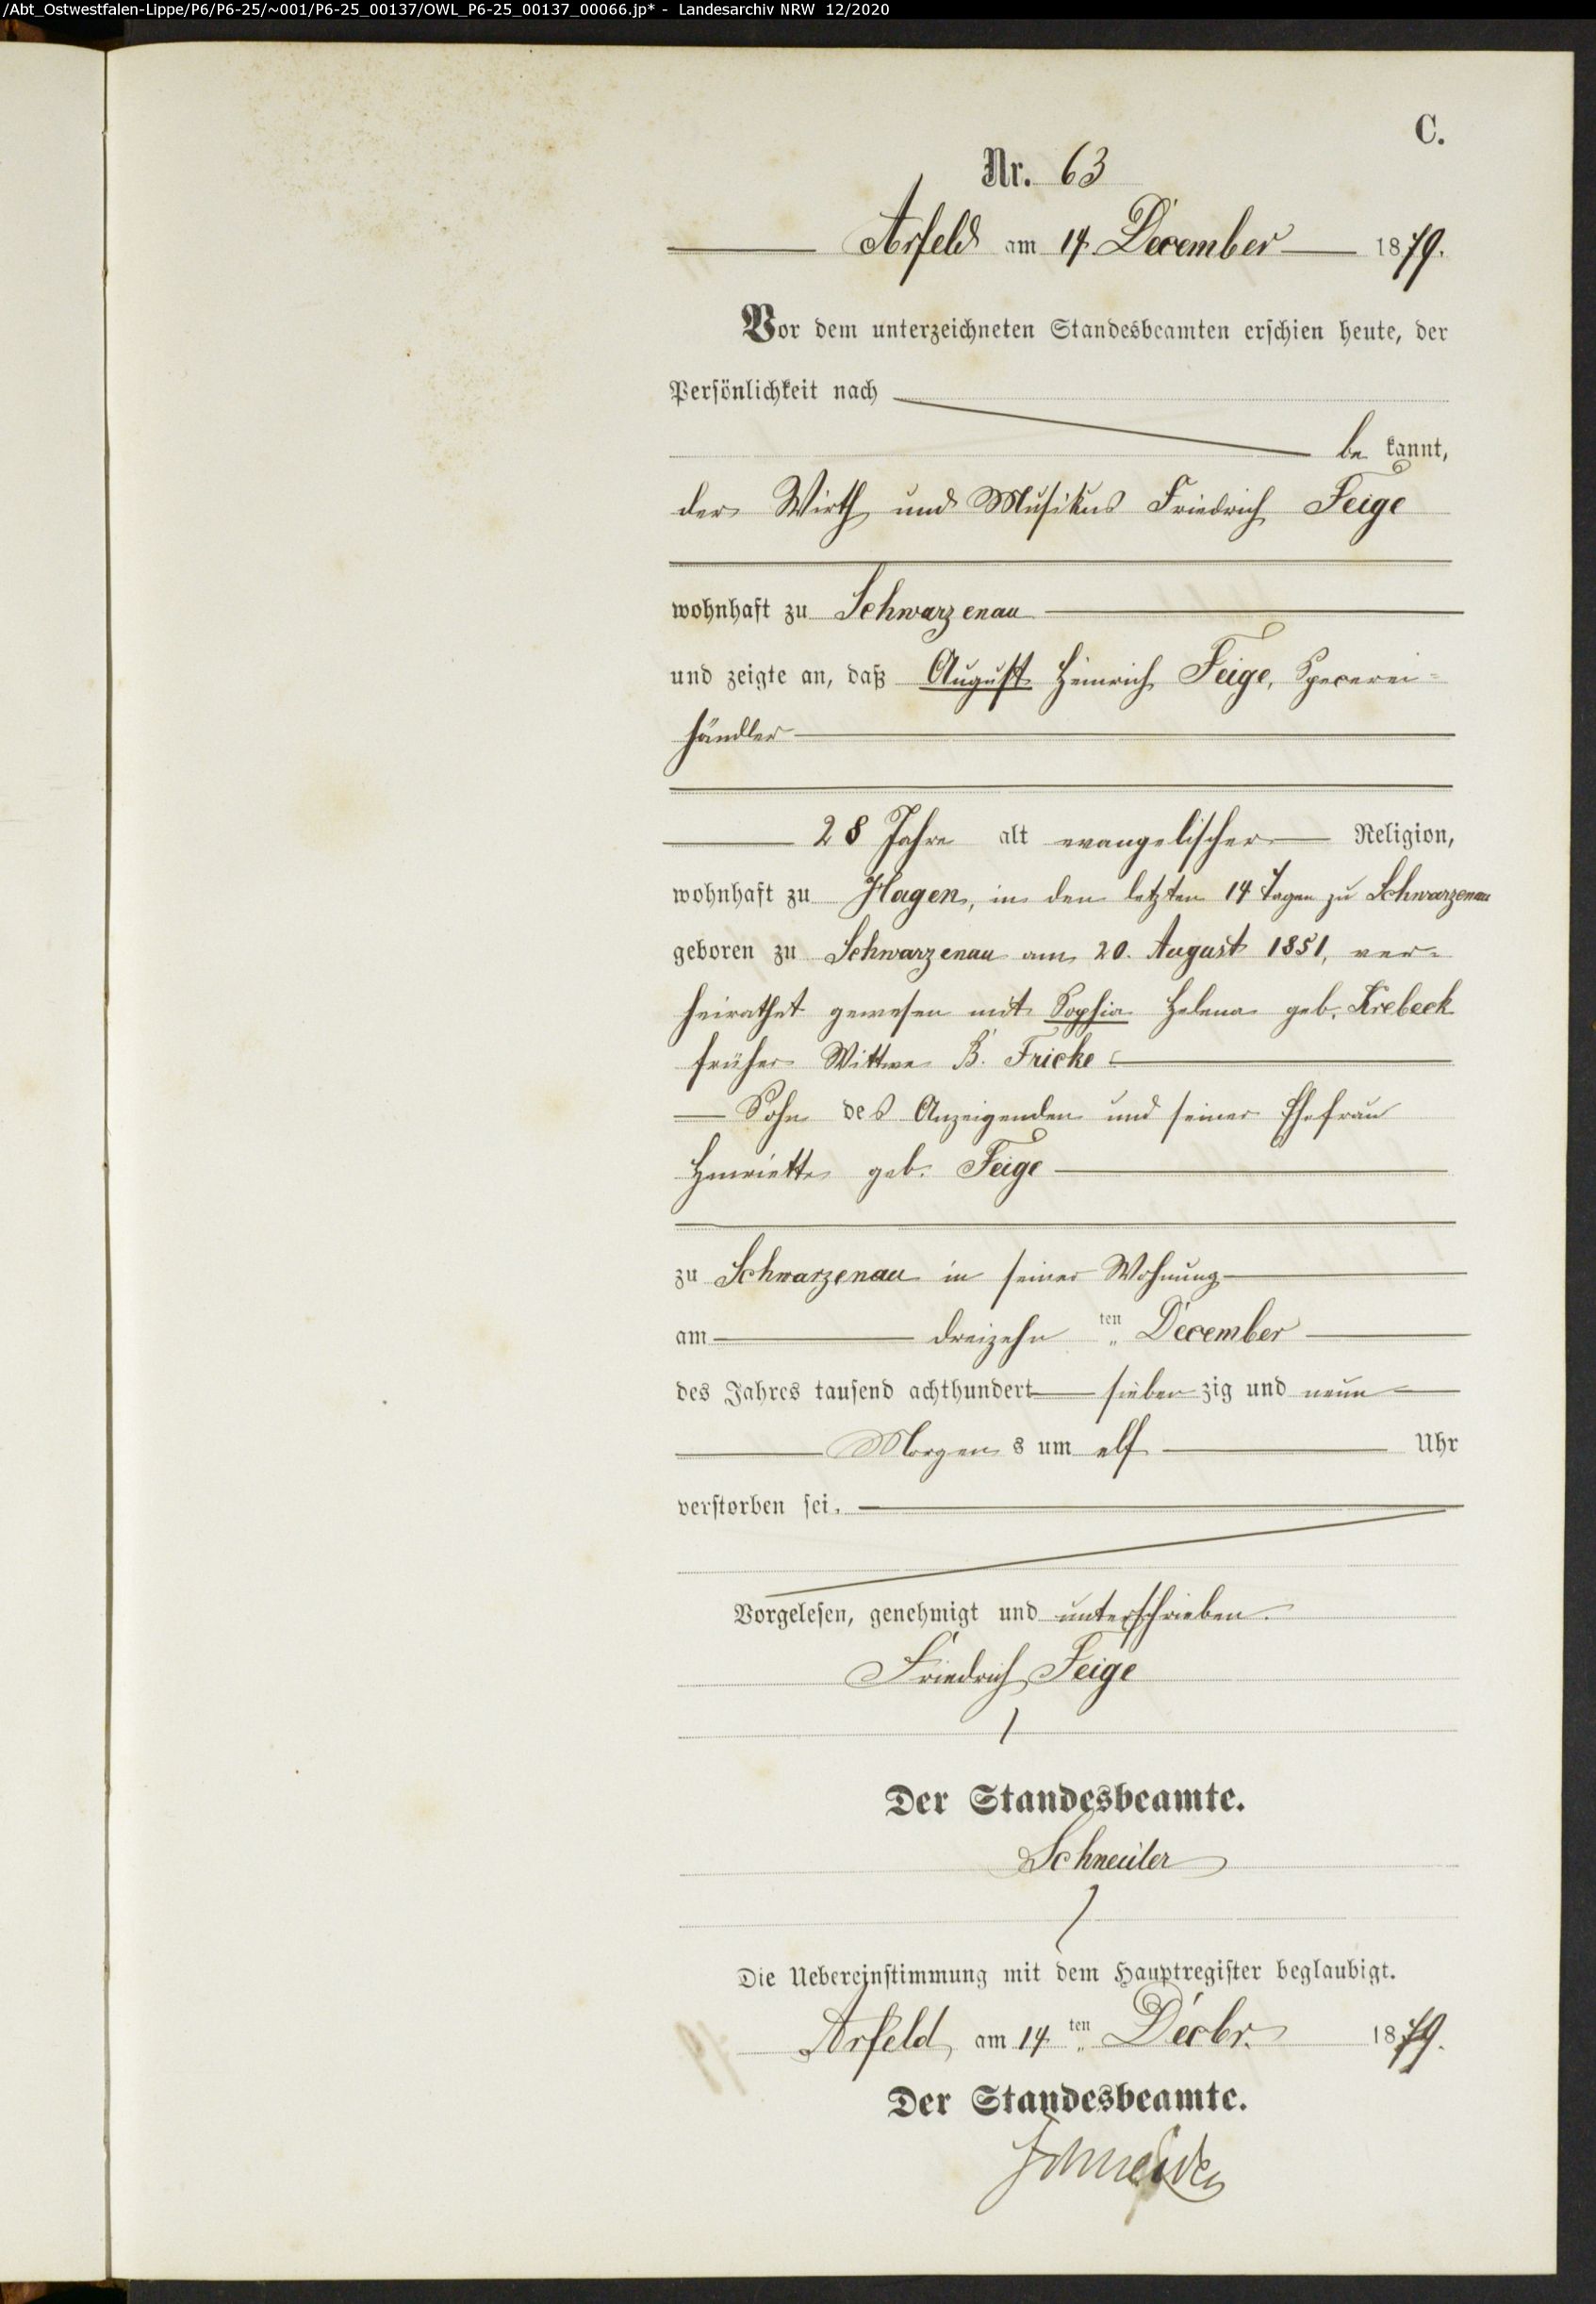 /Abt_Ostwestfalen-Lippe/P6/P6-25/~001/P6-25_00137/OWL_P6-25_00137_00066.jp* - Landesarchiv NRW 12/2020
C.
Nr. 63
Arfeld am 14. December 1879.
Vor dem unterzeichneten Standesbeamten erschien heute, der
Persönlichkeit nach
be kannt,
der Wirth und Musikus Friedrich Feige
wohnhaft zu Schwarzenau
und zeigte an, daß August Heinrich Feige, Specerei-
händler
28 Jahre alt evangelischer Religion,
wohnhaft zu Hagen, in den letzten 14 Tagen zu Schwarzenau
geboren zu Schwarzenau am 20. August 1851, ver-
heirathet gewesen mit Sophia Helena geb. Krebeck
früher Wittwe B. Fricke
Sohn des Anzeigenden und seiner Ehefrau
Henriette geb. Feige
zu Schwarzenau in seiner Wohnung
am dreizehn ten December
des Jahres tausend achthundert sieben zig und neun
Morgen s um elf Uhr
verstorben sei.
Vorgelesen, genehmigt und unterschrieben.
Friedrich Feige
Der Standesbeamte.
Die Uebereinstimmung mit dem Hauptregister beglaubigt.
Arfeld, am 14 ten Decbr. 1879.
Der Standesbeamte.